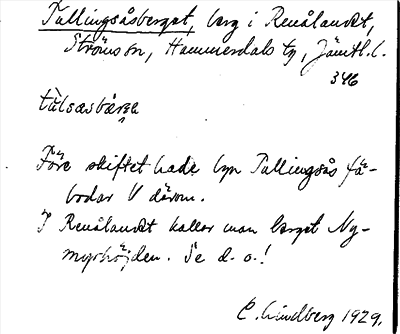 Tullingsåsberget, berg i Renålandet,
Ströms sn, Hammerdals tg, Jämtl. l.
346
tùlsæsbærɟa
Före skiftet hade byn Tullingsås fä-
bodar V därom.
I Renålandet kallar man berget Ny-
myrhöjden. Se d. o.!
C. Lindberg 1929.